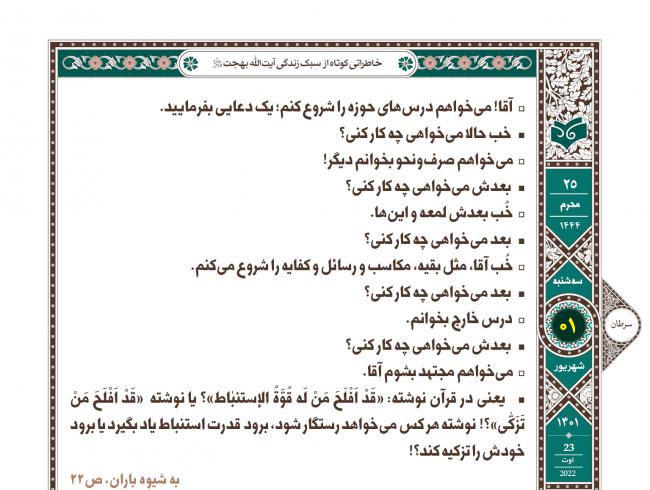 خاطراتی کوتاه از سبک زندگی آیت‌الله بهجت
آقا! می‌خواهم درس‌های حوزه را شروع کنم؛ یک دعایی بفرمایید.
خب حالا می‌خواهی چه کار کنی؟
می‌خواهم صرف‌ونحو بخوانم دیگر!
بعدش می‌خواهی چه کار کنی؟
خُب بعدش لمعه و این‌ها.
بعد می‌خواهی چه کار کنی؟
خُب آقا، مثل بقیه، مکاسب و رسائل و کفایه را شروع می‌کنم.
بعد می‌خواهی چه کار کنی؟
درس خارج بخوانم.
بعدش می‌خواهی چه کار کنی؟
می‌خواهم مجتهد بشوم آقا.
یعنی در قرآن نوشته: «قَدْ اَفْلَحَ مَنْ لَه قُوَّةُ الإستنباط»؟ یا نوشته «قَدْ اَفْلَحَ مَنْ
تَزَکّی»؟! نوشته هر کس می‌خواهد رستگار شود، برود قدرت استنباط یاد بگیرد یا برود
خودش را تزکیه کند؟!
به شیوه باران، ص۲۲
۲۵
محرم
۱۴۴۴
سه‌شنبه
۰۱
سرطان
شهریور
۱۴۰۱
23
اوت
2022